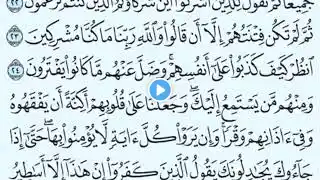 جَمِيعًا ثُمَّ نَقُولُ لِلَّذِينَ أَشْرَكُوٓا۟ أَيْنَ شُرَكَآؤُكُمُ ٱلَّذِينَ كُنتُمْ تَزْعُمُونَ ٢٢
ثُمَّ لَمْ تَكُن فِتْنَتُهُمْ إِلَّآ أَن قَالُوا۟ وَٱللَّهِ رَبِّنَا مَا كُنَّا مُشْرِكِينَ ٢٣
ٱنظُرْ كَيْفَ كَذَبُوا۟ عَلَىٰٓ أَنفُسِهِمْ ۚ وَضَلَّ عَنْهُم مَّا كَانُوا۟ يَفْتَرُونَ ٢٤
وَمِنْهُم مَّن يَسْتَمِعُ إِلَيْكَ ۖ وَجَعَلْنَا عَلَىٰ قُلُوبِهِمْ أَكِنَّةً أَن يَفْقَهُوهُ
وَفِىٓ ءَاذَانِهِمْ وَقْرًا ۚ وَإِن يَرَوْا۟ كُلَّ ءَايَةٍ لَّا يُؤْمِنُوا۟ بِهَا ۚ حَتَّىٰٓ إِذَا
جَآءُوكَ يُجَٰدِلُونَكَ يَقُولُ ٱلَّذِينَ كَفَرُوٓا۟ إِنْ هَٰذَآ إِلَّآ أَسَٰطِيرُ